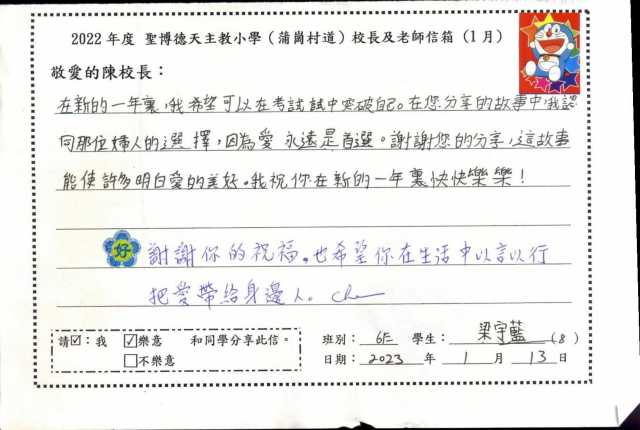 2022 年度 聖博德天主教小學（蒲崗村道）校長及老師信箱（1 月）
敬愛的陳校長：
在新的一年裏，我希望可以在考試試中突破自己。在您分享的故事中，我認
同那位婦人的選擇，因為愛永遠是首選。謝謝您的分享，這故事
能使許多明白愛的美好。我祝你在新的一年裏快快樂樂！
好 謝謝你的祝福。也希望你在生活中以言以行
把愛帶給身邊人。
請☑：我 ☑樂意 和同學分享此信。
□不樂意
班別： 6E 學生： 梁宇藍 （8）
日期： 2023 年 1 月 13 日